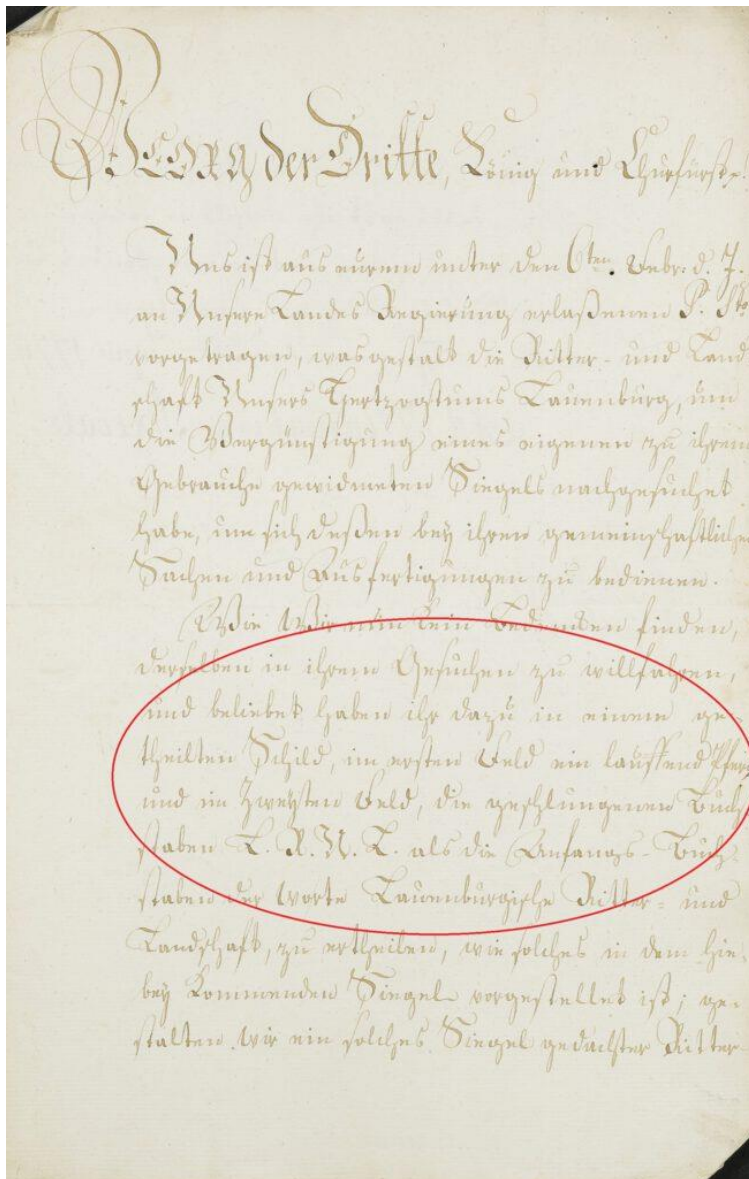 GEORG der Dritte, König und Churfürst p.
Uns ist aus eurem unter den 6ten Febr. d. J.
an Unsere Landes Regierung erlaßenen P. Sto
vorgetragen, was gestalt die Ritter- und Land
schaft Unsers Hertzogtums Lauenburg, um
die Vergünstigung eines eigenen zu ihrem
Gebrauche gewidmeten Siegels nachgesuchet
habe, um sich deßen bey ihren gemeinschaftlichen
Sachen und Ausfertigungen zu bedienen.
Wie Wir nun kein Bedenken finden,
derselben in ihrem Gesuchen zu willfahren,
und beliebet haben ihr dazu in einem ge-
theilten Schild, im ersten Feld ein lauffend Pferd
und im Zweyten Feld, die geschlungenen Buch
staben L. R. U. L. als die Anfangs-Buch-
staben der Worte Lauenburgische Ritter- und
Landschaft, zu ertheilen, wie solches in dem hie-
bey kommenden Siegel vorgestellet ist; ge-
stalten wir ein solches Siegel gedachter Ritter-